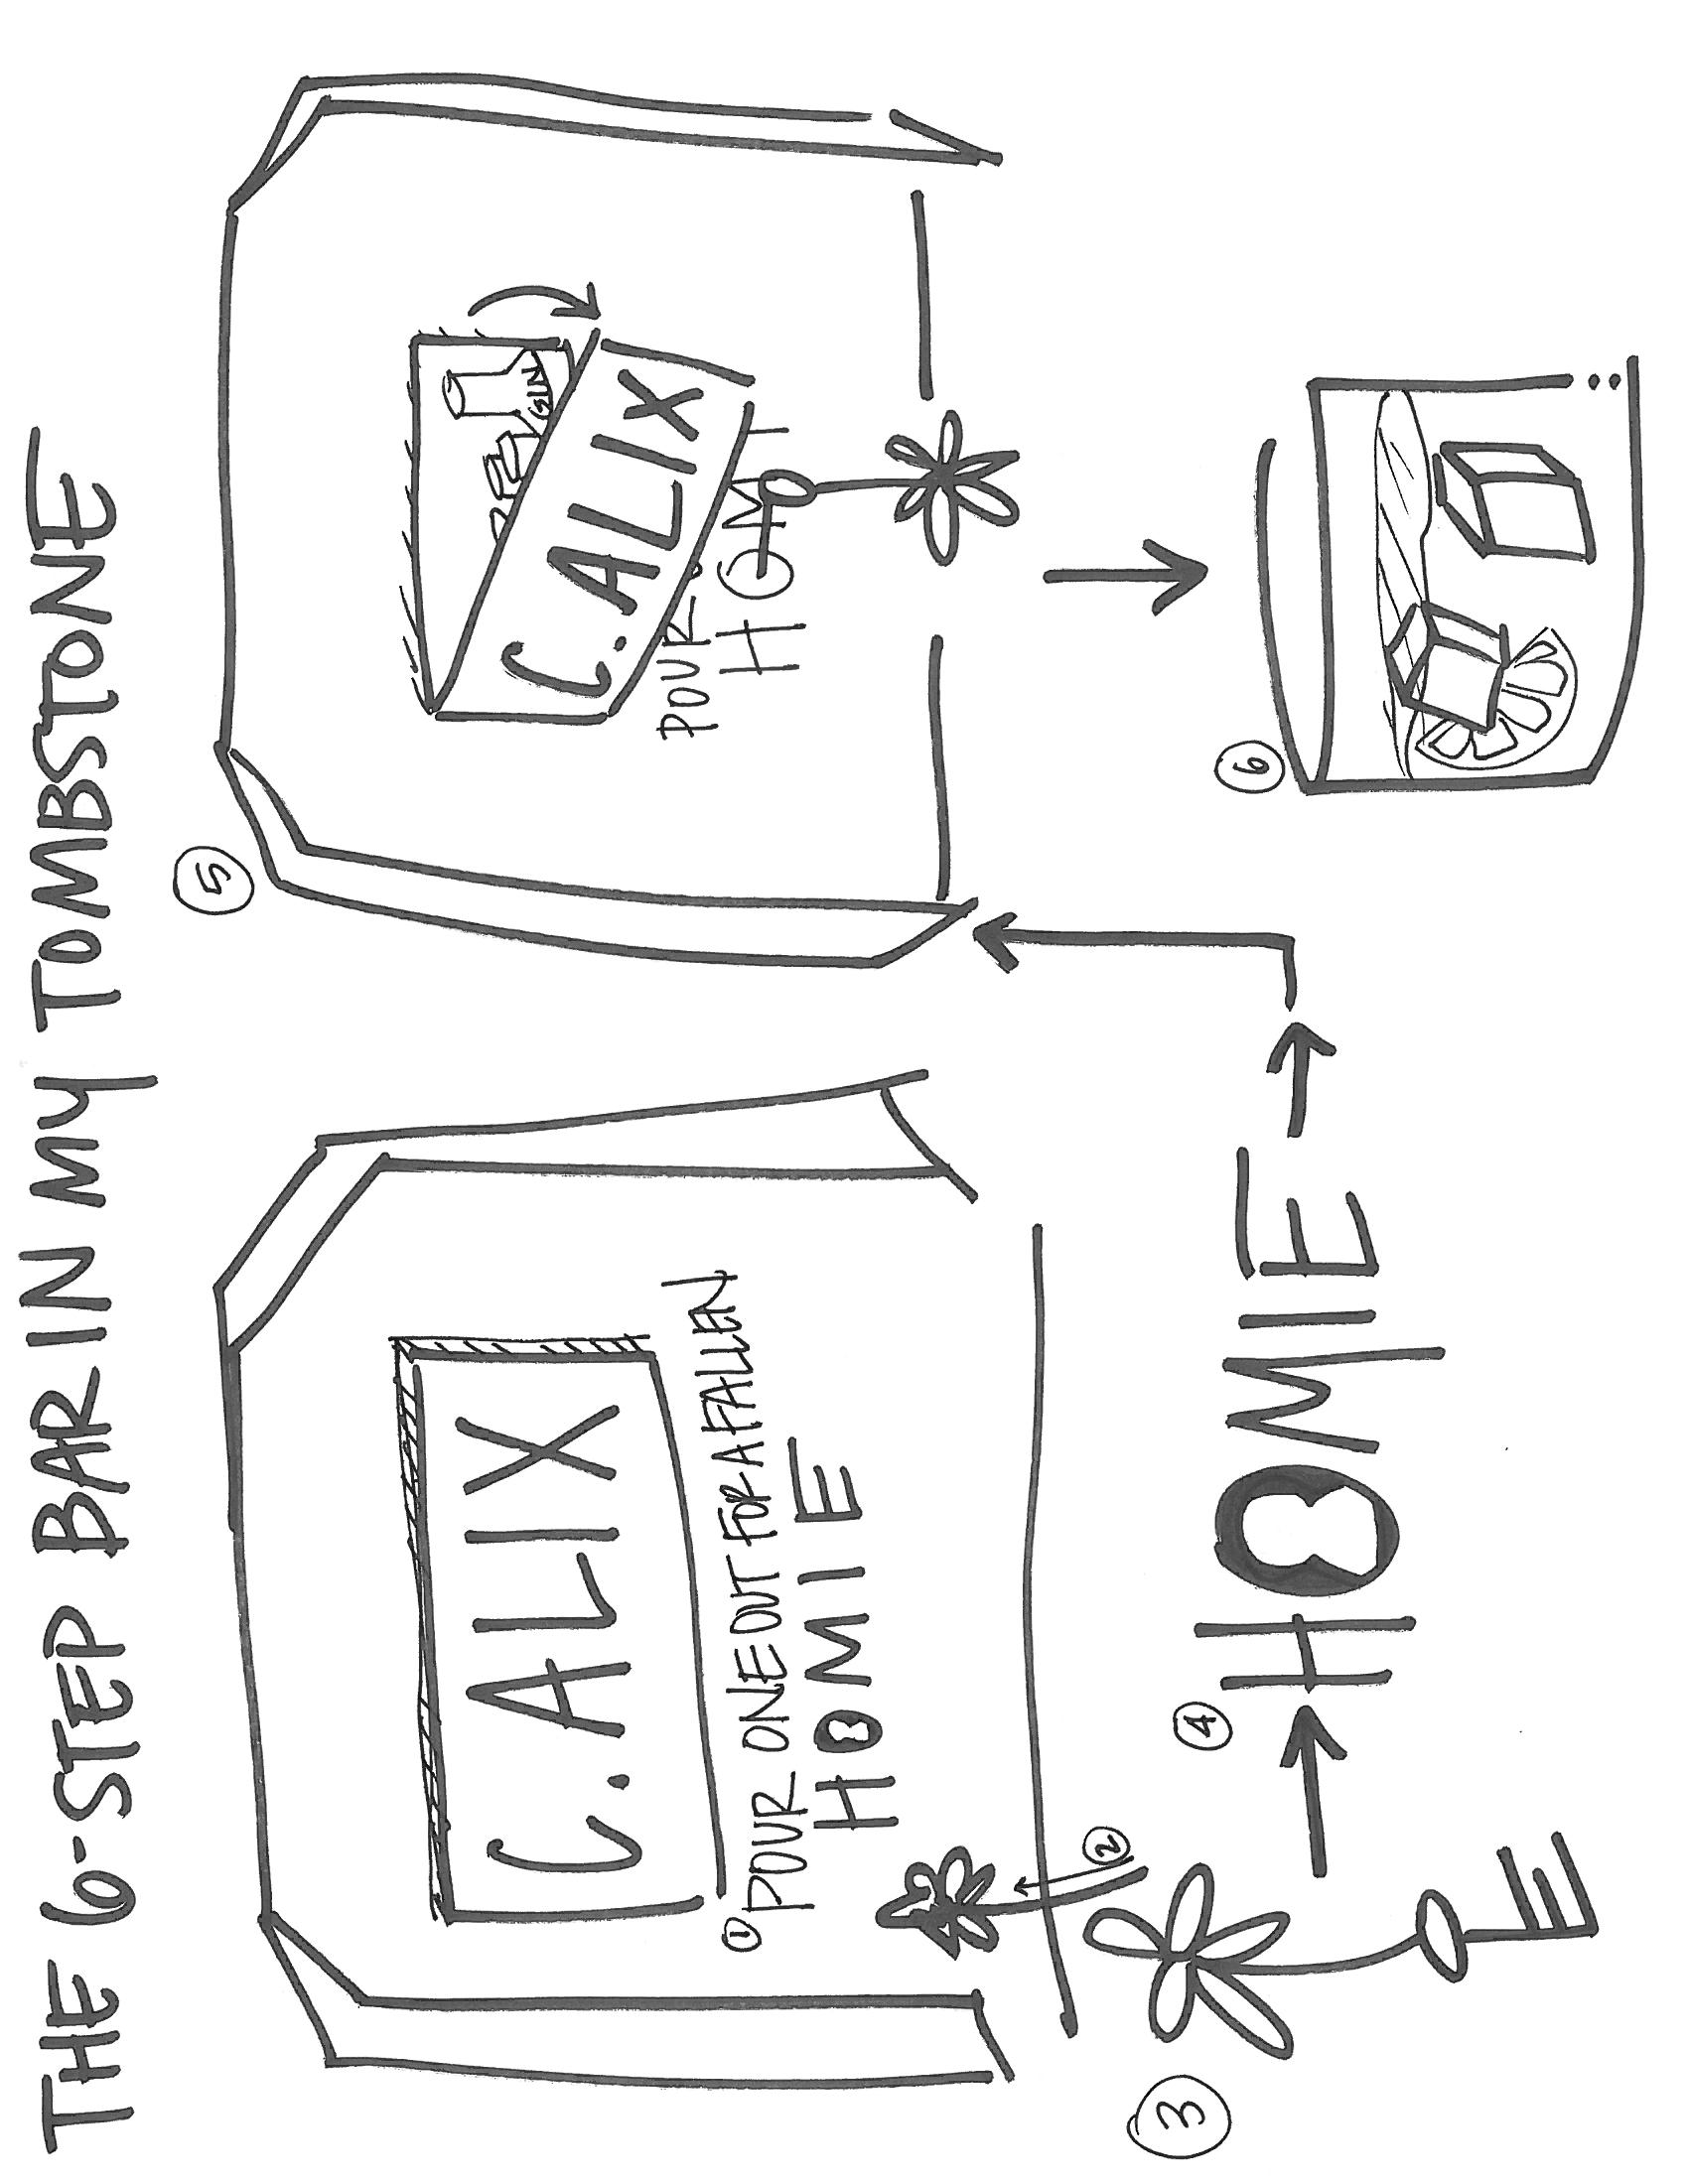 THE 6-STEP BAR IN MY TOMBSTONE
C. ALIX
① POUR ONE OUT FOR A FALLEN
HOMIE
②
③
④
HOMIE
⑤
GIN
C. ALIX
POUR
HOM
⑥